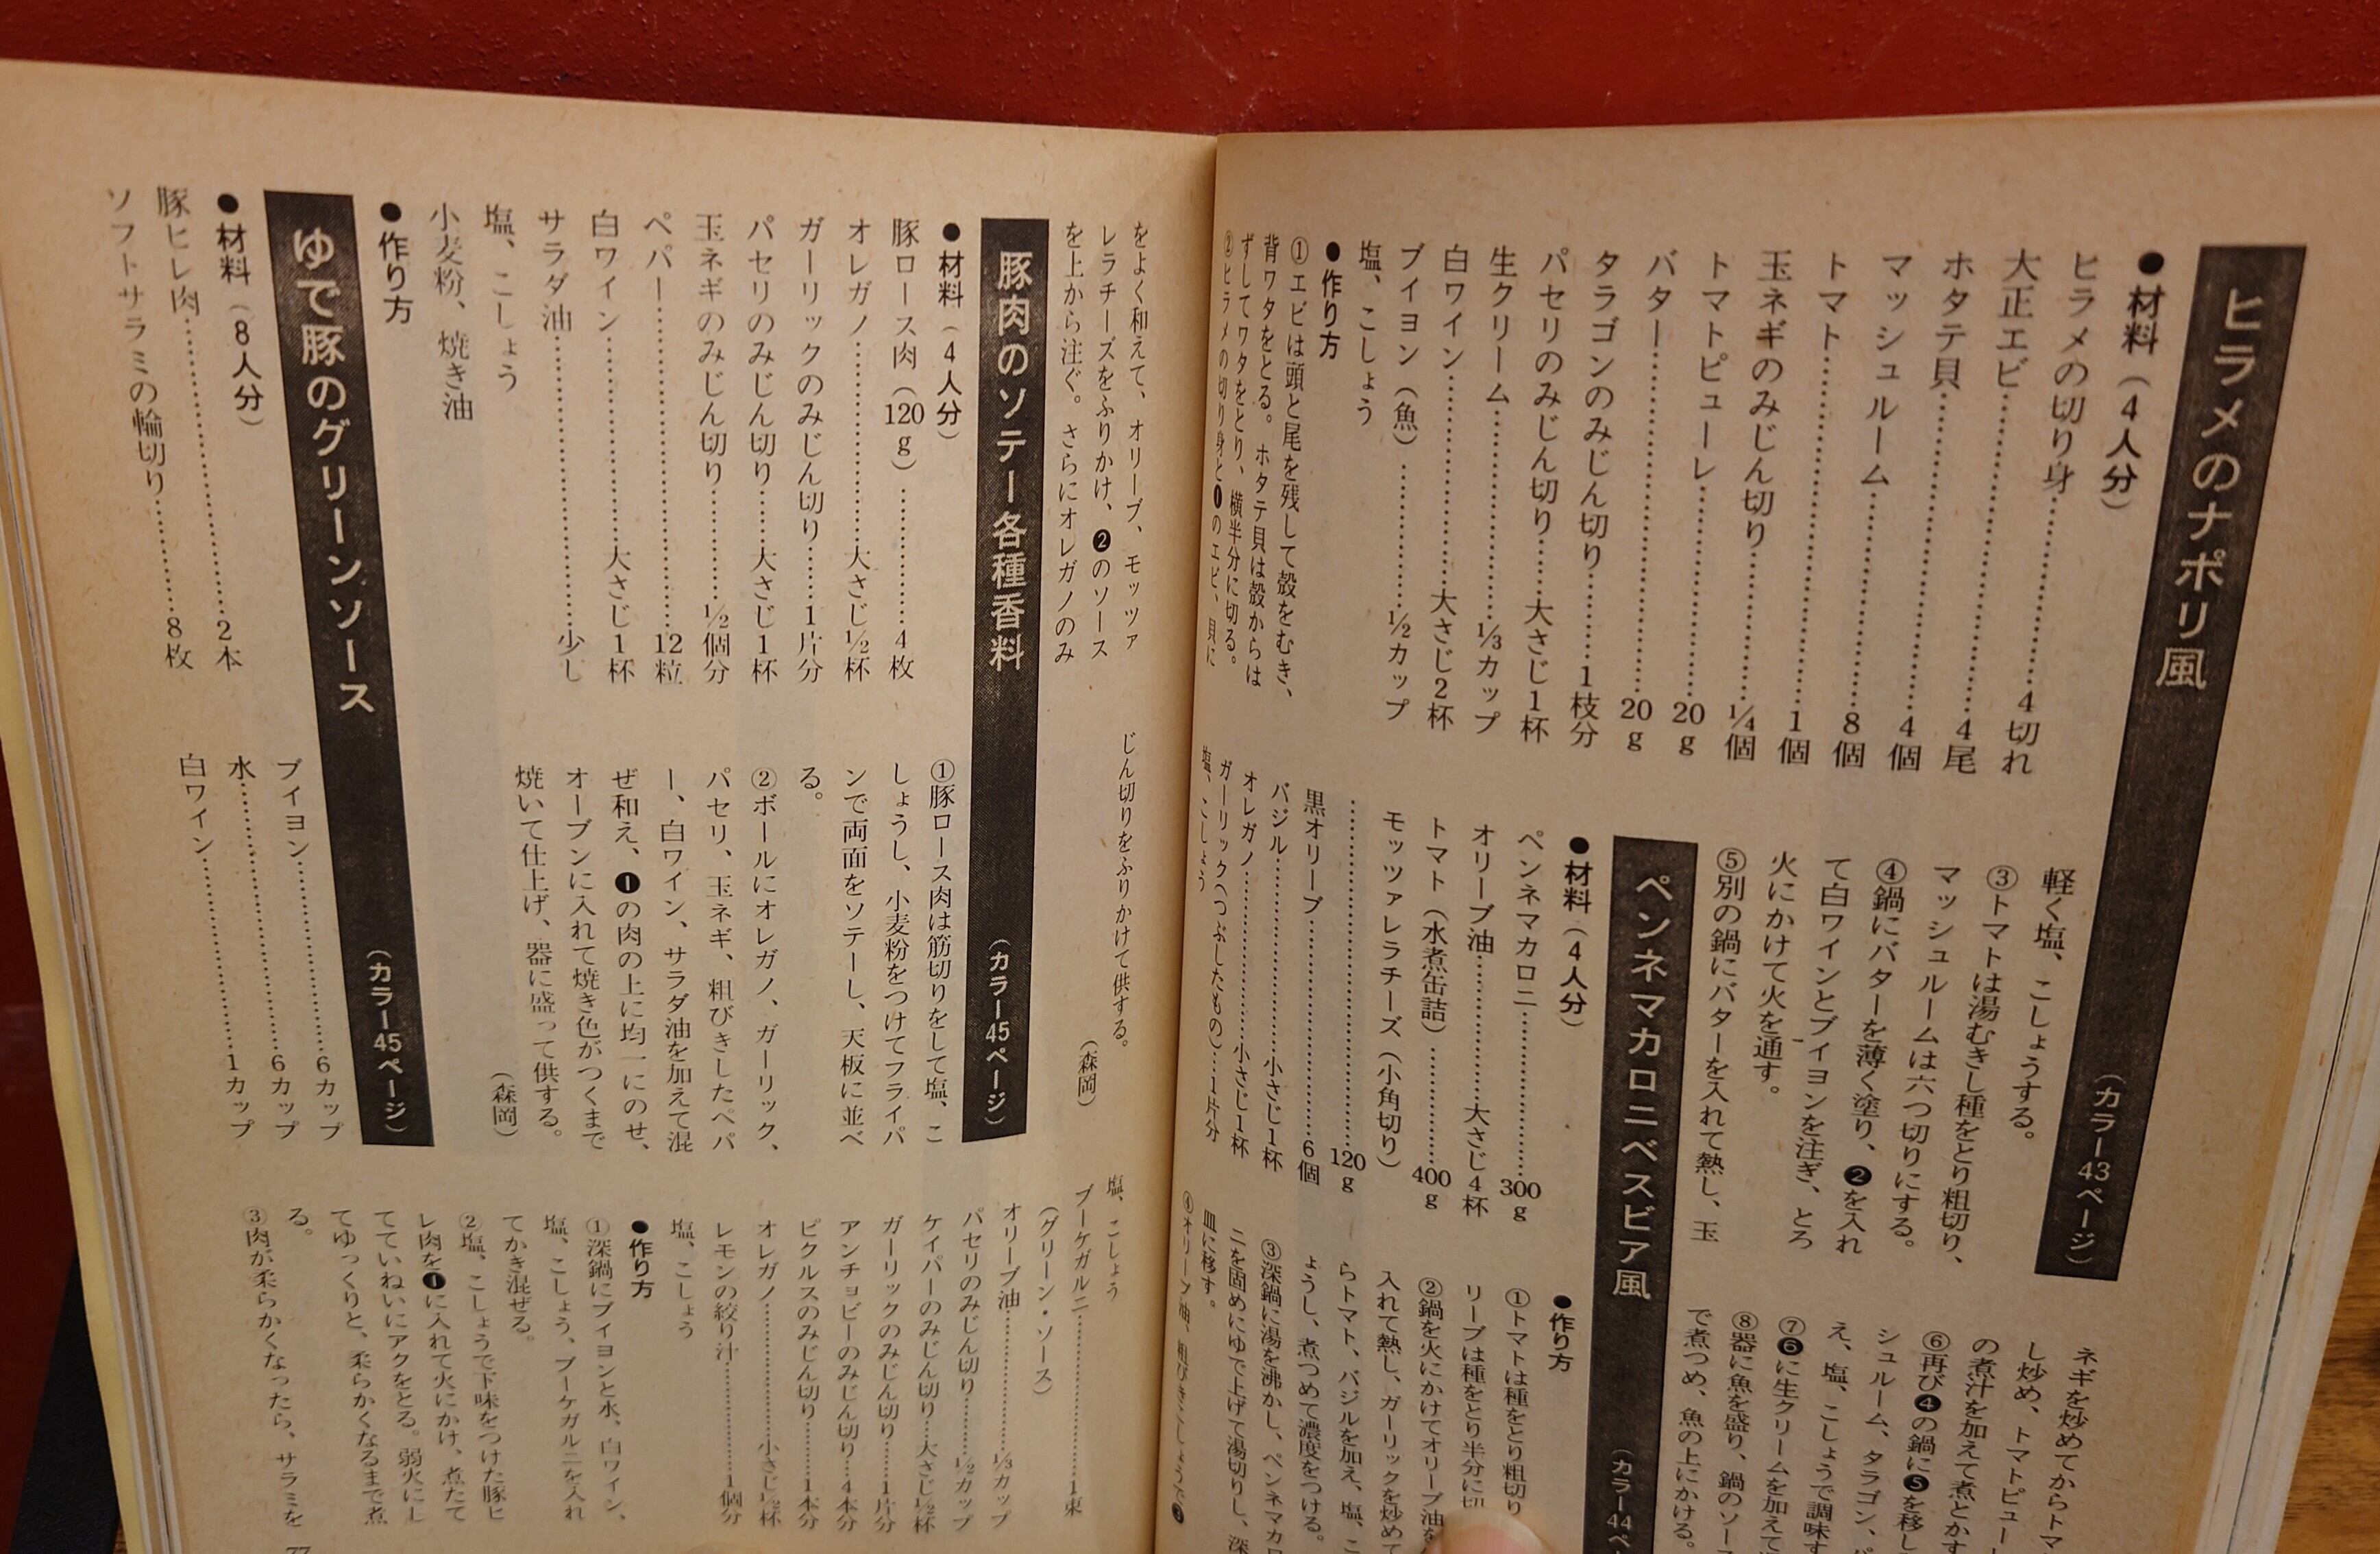 ヒラメのナポリ風
(カラー43ページ)
●材料(4人分)
ヒラメの切り身……4切れ
大正エビ……4尾
ホタテ貝……4個
マッシュルーム……8個
トマト……1個
玉ネギのみじん切り……1/4個
トマトピューレ……20g
バター……20g
タラゴンのみじん切り……1枝分
パセリのみじん切り……大さじ1杯
生クリーム……1/3カップ
白ワイン……大さじ2杯
ブイヨン(魚)……1/2カップ
塩、こしょう
●作り方
①エビは頭と尾を残して殻をむき、
背ワタをとる。ホタテ貝は殻からは
ずしてワタをとり、横半分に切る。
②ヒラメの切り身と❶のエビ、貝に
軽く塩、こしょうする。
③トマトは湯むきし種をとり粗切り、
マッシュルームは六つ切りにする。
④鍋にバターを薄く塗り、❷を入れ
て白ワインとブイヨンを注ぎ、とろ
火にかけて火を通す。
⑤別の鍋にバターを入れて熱し、玉
ネギを炒めてからトマ
し炒め、トマトピュー
の煮汁を加えて煮とかす
⑥再び❹の鍋に❺を移し
シュルーム、タラゴン、
え、塩、こしょうで調味す
⑦❻に生クリームを加えて
⑧器に魚を盛り、鍋のソー
で煮つめ、魚の上にかける。
ペンネマカロニベスビア風
(カラー44ペ
●材料(4人分)
ペンネマカロニ……300g
オリーブ油……大さじ4杯
トマト(水煮缶詰)……400g
モッツァレラチーズ(小角切り)
……120g
黒オリーブ……6個
バジル……小さじ1杯
オレガノ……小さじ1杯
ガーリック(つぶしたもの)…1片分
塩、こしょう
●作り方
①トマトは種をとり粗切り
リーブは種をとり半分に切
②鍋を火にかけてオリーブ油を
入れて熱し、ガーリックを炒めて
らトマト、バジルを加え、塩、こ
ょうし、煮つめて濃度をつける。
③深鍋に湯を沸かし、ペンネマカロ
ニを固めにゆで上げて湯切りし、深
皿に移す。
④オリーブ油、粗びきこしょうで❸
をよく和えて、オリーブ、モッツァ
レラチーズをふりかけ、❷のソース
を上から注ぐ。さらにオレガノのみ
じん切りをふりかけて供する。
(森岡)
豚肉のソテー各種香料
(カラー45ページ)
●材料(4人分)
豚ロース肉(120g)……4枚
オレガノ……大さじ1/2杯
ガーリックのみじん切り……1片分
パセリのみじん切り……大さじ1杯
玉ネギのみじん切り……1/2個分
ペパー……12粒
白ワイン……大さじ1杯
サラダ油……少し
塩、こしょう
小麦粉、焼き油
●作り方
①豚ロース肉は筋切りをして塩、こ
しょうし、小麦粉をつけてフライパ
ンで両面をソテーし、天板に並べ
る。
②ボールにオレガノ、ガーリック、
パセリ、玉ネギ、粗びきしたペパ
ー、白ワイン、サラダ油を加えて混
ぜ和え、❶の肉の上に均一にのせ、
オーブンに入れて焼き色がつくまで
焼いて仕上げ、器に盛って供する。
(森岡)
ゆで豚のグリーンソース
(カラー45ページ)
●材料(8人分)
豚ヒレ肉……2本
ソフトサラミの輪切り……8枚
ブイヨン……6カップ
水……6カップ
白ワイン……1カップ
塩、こしょう
ブーケガルニ……1束
(グリーン・ソース)
オリーブ油……1/3カップ
パセリのみじん切り……1/2カップ
ケイパーのみじん切り…大さじ1/2杯
ガーリックのみじん切り……1片分
アンチョビーのみじん切り…4本分
ピクルスのみじん切り……1本分
オレガノ……小さじ1/2杯
レモンの絞り汁……1個分
塩、こしょう
●作り方
①深鍋にブイヨンと水、白ワイン、
塩、こしょう、ブーケガルニを入れ
てかき混ぜる。
②塩、こしょうで下味をつけた豚ヒ
レ肉を❶に入れて火にかけ、煮たて
てていねいにアクをとる。弱火にし
てゆっくりと、柔らかくなるまで煮
る。
③肉が柔らかくなったら、サラミを
77